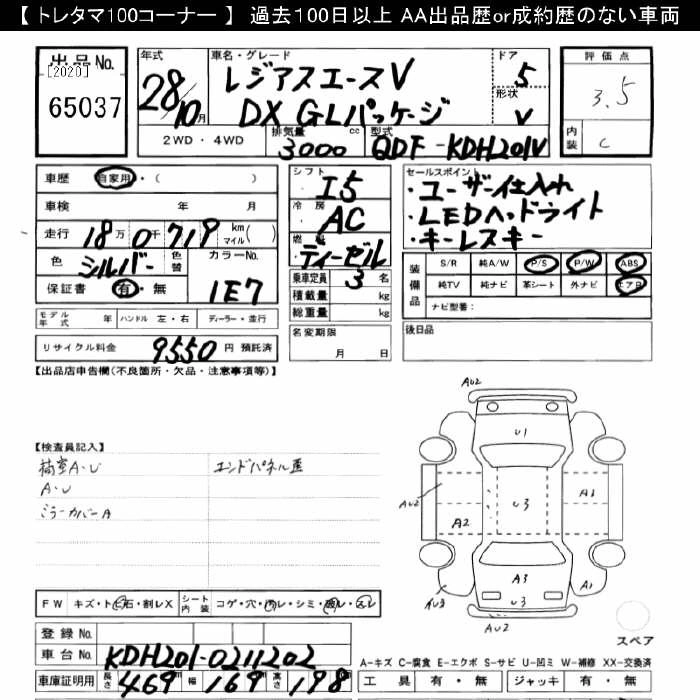 【 トレタマ100コーナー 】 過去100日以上 AA出品歴or成約歴のない車両
出品No.
[2020]
65037
年式
28/10月
車名・グレード
レジアスエースV
DX GLパッケージ
ドア
5
形状
V
評価点
3.5
内装
C
2WD・4WD
排気量
3000 cc
型式
QDF-KDH201V
車歴 自家用・( )
車検 年 月
走行 18万0千719 km マイル( )
色 シルバー 色替
カラーNo.
1E7
保証書 有・無
モデル年式 年 ハンドル 左・右 ディーラー・並行
リサイクル料金 9550 円 預託済
シフト
I5
冷房
AC
燃料
ディーゼル
乗車定員 3 名
積載量 kg
総重量 kg
名変期限
月 日
セールスポイント
・ユーザー仕入れ
・LEDヘッドライト
・キーレスキー
装備品
S/R 純A/W P/S P/W ABS
純TV 純ナビ 革シート 外ナビ エアB
ナビ型番:
後日品
【出品店申告欄(不良箇所・欠品・注意事項等)】
【検査員記入】
荷室A・U エンドパネル歪
A・U
ミラーカバーA
AU2
U1
AU2
A2
U3
A1
A3
U3
AU3
A1
AU2
スペア
FW キズ・トビ石・割レX シート内装 コゲ・穴・汚レ・シミ・破レ・スレ
登録No.
車台No. KDH201-0211202
車庫証明用 長さ 469 幅 169 高さ 198
A-キズ C-腐食 E-エクボ S-サビ U-凹ミ W-補修 XX-交換済
工具 有・無 ジャッキ 有・無